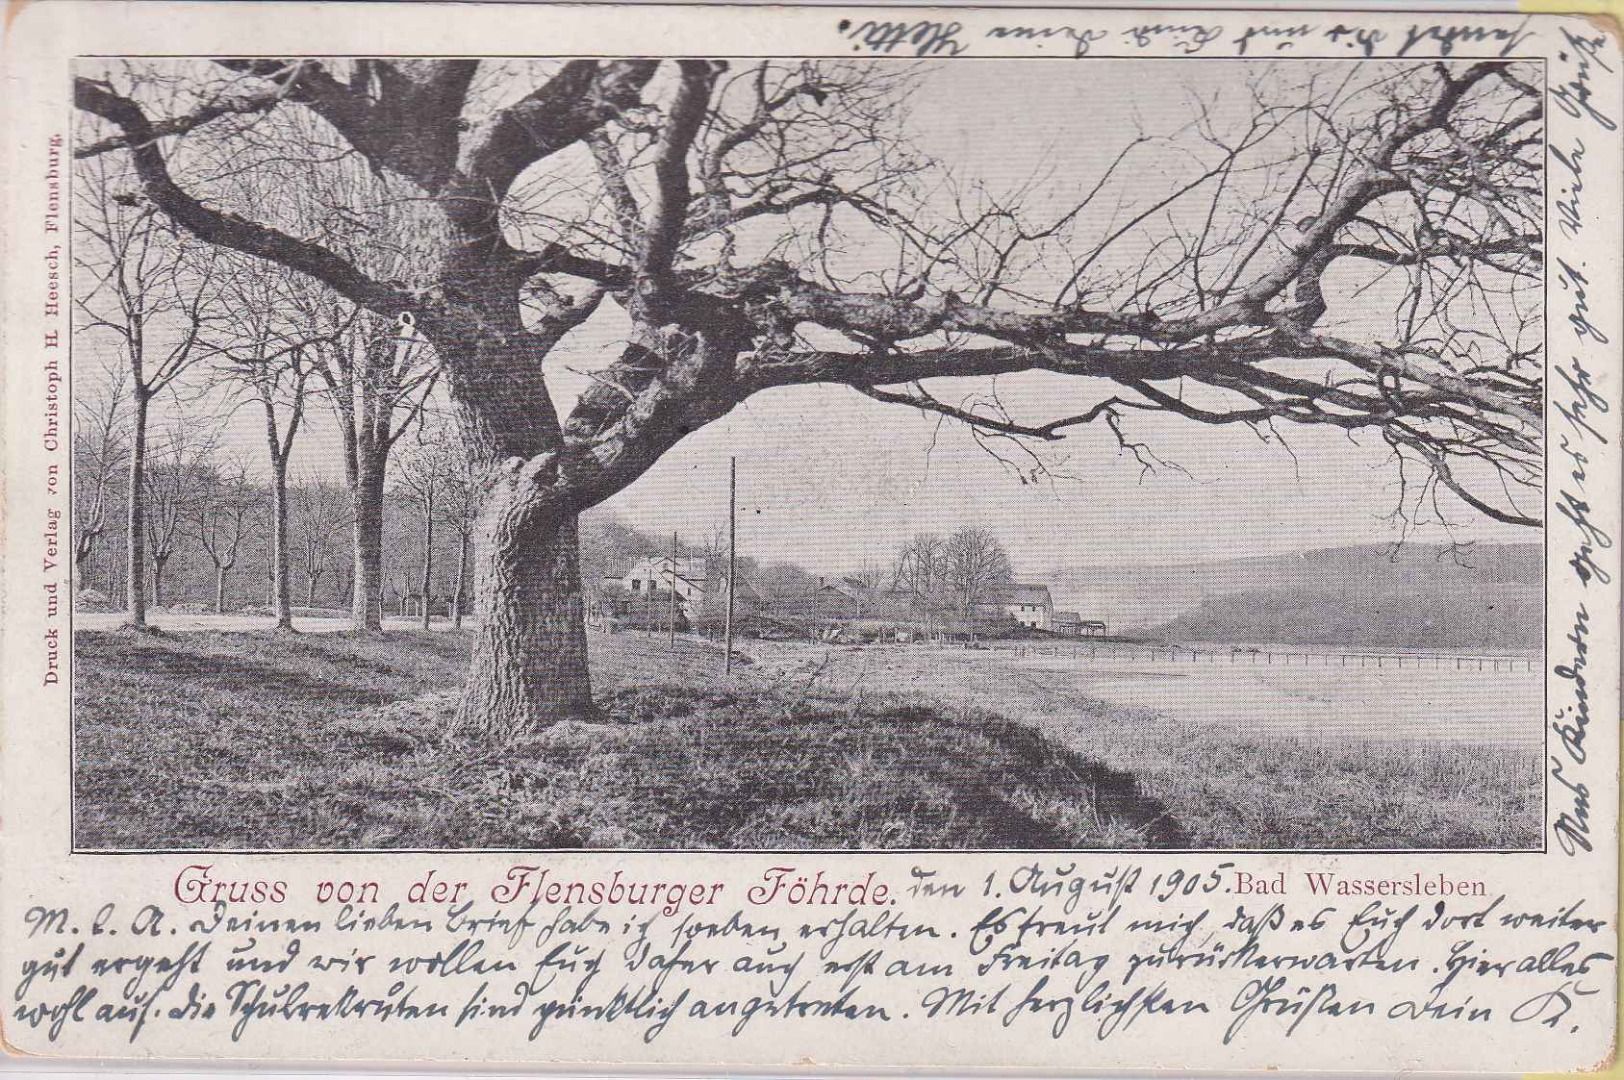 Druck und Verlag von Christoph H. Heesch, Flensburg.
Gruss von der Flensburger Föhrde. den 1. August 1905. Bad Wassersleben
M. l. A. Deinen lieben Brief habe ich soeben erhalten. Es freut mich, daß es Euch dort weiter
gut ergeht und wir wollen Euch daher auch erst am Freitag zurückerwarten. Hier alles
wohl auf. Die Schulrekruten sind pünktlich angetreten. Mit herzlichsten Grüßen Dein K.
Kindern geht es sehr gut. Viele Grüße
sendet Dir und Deine Hetti.